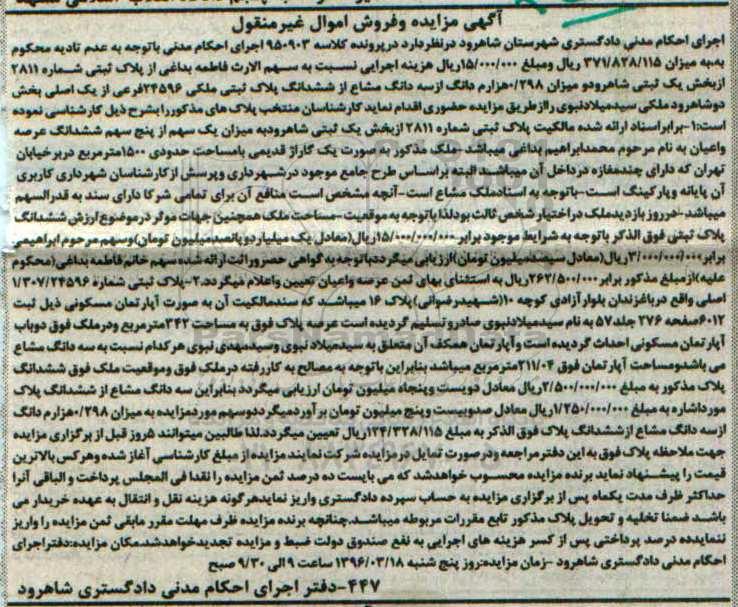 آگهی مزایده وفروش اموال غیرمنقول
اجرای احکام مدنی دادگستری شهرستان شاهرود درنظردارد درپرونده کلاسه ۹۵۰۹۰۳ اجرای احکام مدنی باتوجه به عدم تادیه محکوم
به،به میزان ۳۷۱/۸۲۸/۱۱۵ ریال ومبلغ ۱۵/۰۰۰/۰۰۰ریال هزینه اجرایی نسبت به سهم الارث فاطمه بداغی از پلاک ثبتی شماره ۲۸۱۱
ازبخش یک ثبتی شاهرودو میزان ۰/۲۹۸هزارم دانگ ازسه دانگ مشاع از ششدانگ پلاک ثبتی ملکی ۲۴۵۹۶فرعی از یک اصلی بخش
دوشاهرود ملکی سیدمیلادنبوی راازطریق مزایده حضوری اقدام نماید کارشناسان منتخب پلاک های مذکوررابشرح ذیل کارشناسی نموده
است:۱-برابراسناد ارائه شده مالکیت پلاک ثبتی شماره ۲۸۱۱ ازبخش یک ثبتی شاهرودبه میزان یک سهم از پنج سهم ششدانگ عرصه
واعیان به نام مرحوم محمدابراهیم بداغی میباشد -ملک مذکور به صورت یک گاراژ قدیمی بامساحت حدودی ۱۵۰۰مترمربع دربرخیابان
تهران که دارای چندمغازه درداخل آن میباشد البته براساس طرح جامع موجود درشهرداری وپرسش از کارشناسان شهرداری کاربری
آن پایانه وپارکینگ است-باتوجه به اسنادملک مشاع است-آنچه مشخص است منافع آن برای تمامی شرکا دارای سند به قدرالسهم
میباشد-درروز بازدیدملک دراختیار شخص ثالث بودلذا باتوجه به موقعیت-مساحت ملک همچنین جهات موثر درموضوع ارزش ششدانگ
پلاک ثبتی فوق الذکر باتوجه به شرایط موجود برابر ۱۵/۰۰۰/۰۰۰/۰۰۰ریال(معادل یک میلیاردوپانصدمیلیون تومان)وسهم مرحوم ابراهیمی
برابر ۳/۰۰۰/۰۰۰/۰۰۰ریال(معادل سیصدمیلیون تومان)ارزیابی میگرددباتوجه به گواهی حصروراثت ارائه شده سهم خانم فاطمه بداغی(محکوم
علیه)ازمبلغ مذکور برابر ۲۶۲/۵۰۰/۰۰۰ریال به استثنای بهای ثمن عرصه واعیان تعیین واعلام میگردد.۲-پلاک ثبتی شماره ۱/۳۰۷/۲۴۵۹۶
اصلی واقع درباغزندان بلوارآزادی کوچه ۱۰(شهیدرضوانی)پلاک ۱۶ میباشد که سندمالکیت آن به صورت آپارتمان مسکونی ذیل ثبت
۶۰۱۲صفحه ۲۷۶ جلد۵۷ به نام سیدمیلادنبوی صادروتسلیم گردیده است عرصه پلاک فوق به مساحت ۳۴۲مترمربع ودرملک فوق دوباب
آپارتمان مسکونی احداث گردیده است وآپارتمان همکف آن متعلق به سیدمیلاد نبوی وسیدمهدی نبوی هرکدام نسبت به سه دانگ مشاع
می باشدومساحت آپارتمان فوق ۲۱۱/۰۴مترمربع میباشد بنابراین باتوجه به مصالح به کاررفته درملک فوق وموقعیت ملک فوق ششدانگ
پلاک مذکور به مبلغ ۲/۵۰۰/۰۰۰/۰۰۰ریال معادل دویست وپنجاه میلیون تومان ارزیابی میگردد بنابراین سه دانگ مشاع از ششدانگ پلاک
مورداشاره به مبلغ ۱/۲۵۰/۰۰۰/۰۰۰ریال معادل صدوبیست وپنج میلیون تومان برآوردمیگرددوسهم موردمزایده به میزان ۰/۲۹۸هزارم دانگ
ازسه دانگ مشاع ازششدانگ پلاک فوق الذکر به مبلغ ۱۲۴/۳۲۸/۱۱۵ریال تعیین میگردد.لذا طالبین میتوانند ۵روز قبل از برگزاری مزایده
جهت ملاحظه پلاک فوق به این دفترمراجعه ودرصورت تمایل درمزایده شرکت نمایند مزایده از مبلغ کارشناسی آغاز شده وهرکس بالاترین
قیمت را پیشنهاد نماید برنده مزایده محسوب خواهدشد که می بایست ده درصد ثمن مزایده را نقدا فی المجلس پرداخت و الباقی آنرا
حداکثر ظرف مدت یکماه پس از برگزاری مزایده به حساب سپرده دادگستری واریز نمایدهرگونه هزینه نقل و انتقال به عهده خریدار می
باشد ضمنا تخلیه و تحویل پلاک مذکور تابع مقررات مربوطه میباشد.چنانچه برنده مزایده ظرف مهلت مقرر مابقی ثمن مزایده را واریز
ننمایدده درصد پرداختی پس از کسر هزینه های اجرایی به نفع صندوق دولت ضبط و مزایده تجدیدخواهدشد.مکان مزایده:دفتراجرای
احکام مدنی دادگستری شاهرود -زمان مزایده:روز پنج شنبه ۱۳۹۶/۰۳/۱۸ ساعت ۹ الی ۹/۳۰ صبح
۴۴۷-دفتر اجرای احکام مدنی دادگستری شاهرود